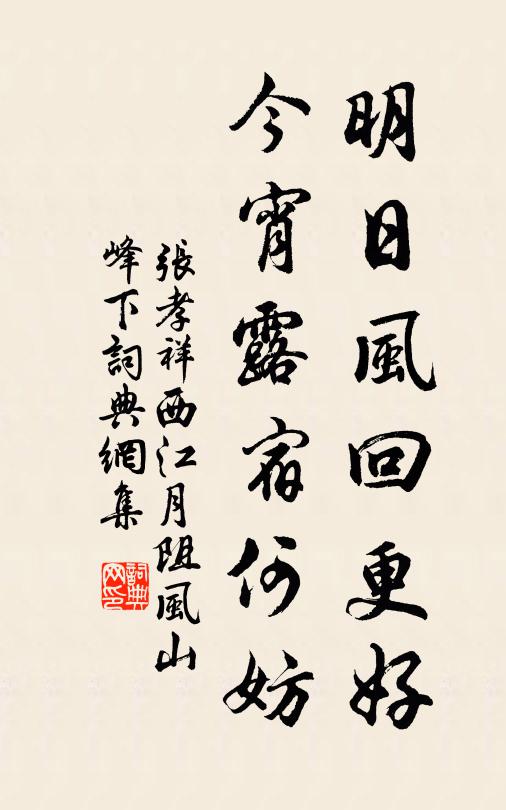 明日風回更好
今宵露宿何妨
張孝祥西江月阻風山
峰下詞典網集
詞典網印